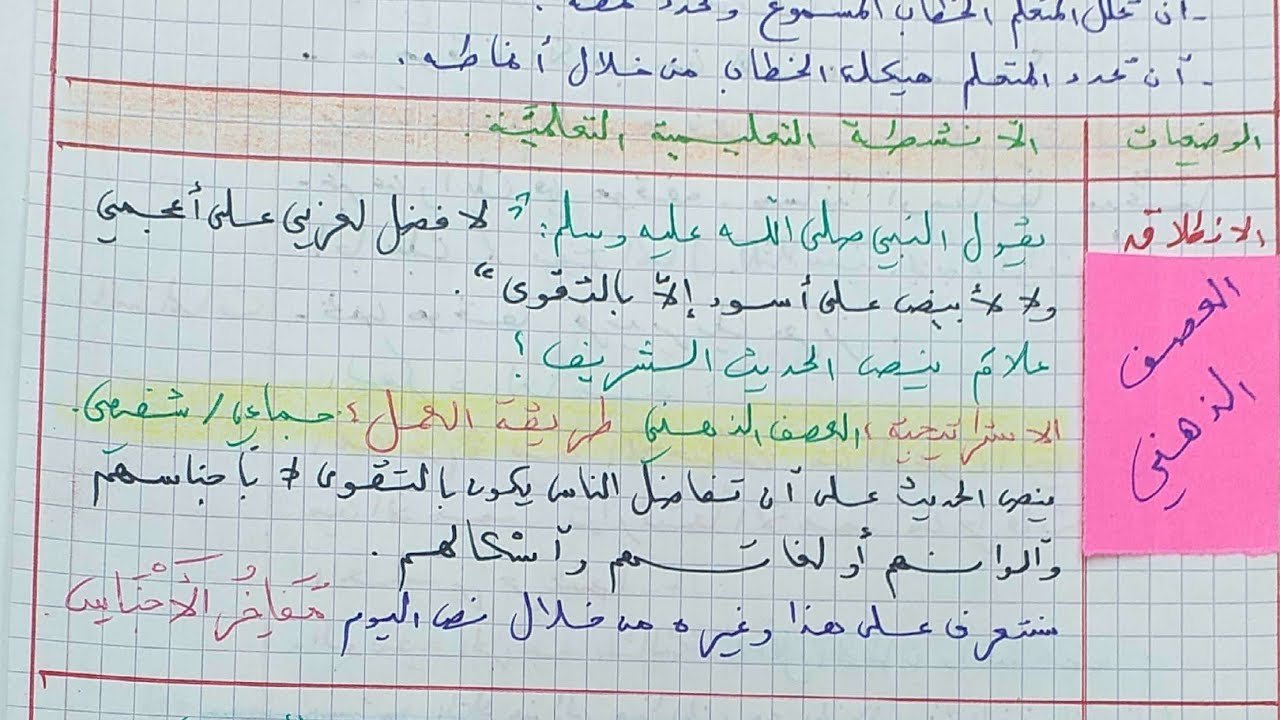 - أن يحلل المتعلم الخطاب المسموع ويحدد نمطه.
- أن يحدد المتعلم هيكلة الخطاب من خلال أنماطه.
الوضعيات
الأنشطة التعليمية التعلمية.
الانطلاقة
العصف
الذهني
يقول النبي صلى الله عليه وسلم: "لا فضل لعربي على أعجمي
ولا لأبيض على أسود إلاّ بالتقوى".
علامَ ينص الحديث الشريف؟
الاستراتيجية: العصف الذهني طريقة العمل: جماعي/ شفهي.
ينص الحديث على أن تفاضل الناس يكون بالتقوى لا بأجناسهم
وألوانهم أو لغاتهم وأشكالهم.
سنتعرف على هذا وغيره من خلال نص اليوم تَفَاخُرُ الأَجْنَاسِ.